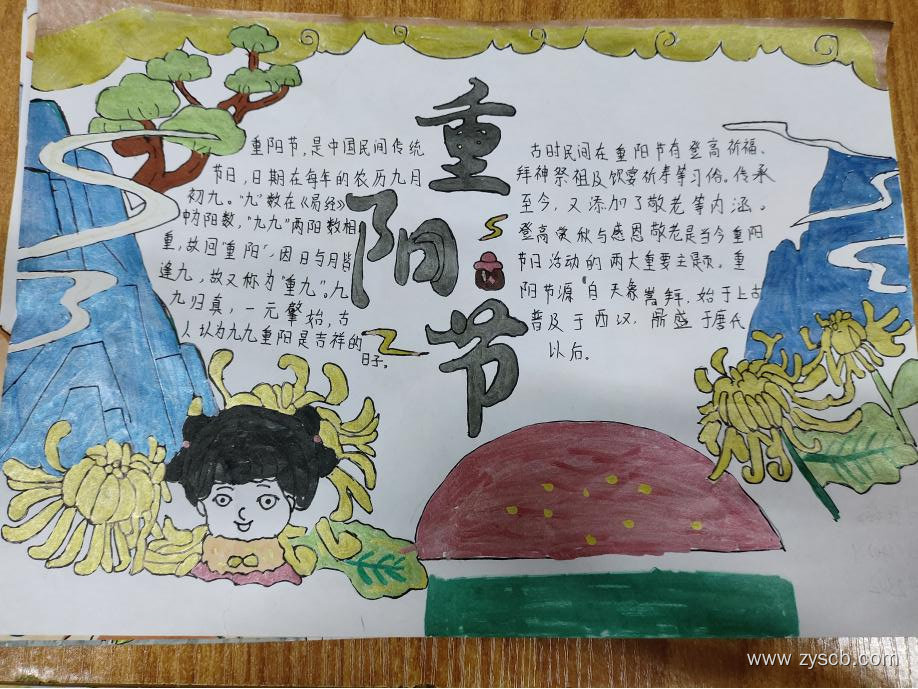 重阳节
重阳节，是中国民间传统
节日，日期在每年的农历九月
初九。"九"数在《易经》
中为阳数，"九九"两阳数相
重，故曰"重阳"，因日与月皆
逢九，故又称为"重九"。九
九归真，一元肇始，古
人认为九九重阳是吉祥的
日子。
古时民间在重阳节有登高祈福、
拜神祭祖及饮宴祈寿等习俗。传承
至今，又添加了敬老等内涵。
登高赏秋与感恩敬老是当今重阳
节日活动的两大重要主题。重
阳节源自天象崇拜，始于上古
普及于西汉，鼎盛于唐代
以后。
www.zyscb.com